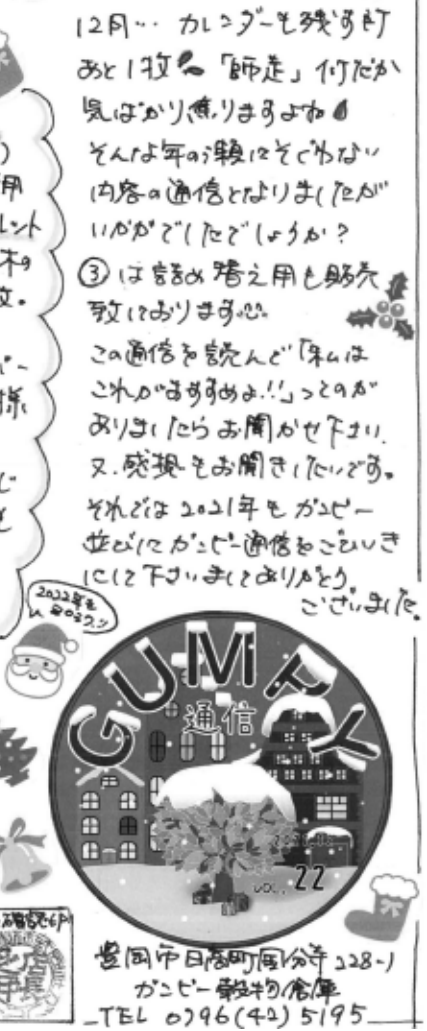 12月… カレンダーも残す所
あと1枚 「師走」何だか
気ばかり焦りますよね
そんな年の瀬にそぐわない
内容の通信となりましたが
いかがでしたでしょうか?
③は詰め替え用も販売
致しております
この通信を読んで「私は
これがおすすめよ!!」ってのが
ありましたらお聞かせ下さい。
又、感想もお聞きしたいです。
それでは2021年もガンピー
並びにガンピー通信をごひいき
にして下さいましてありがとう
ございました。
2022年も
GUMPY
通信
VOL. 22
豊岡市日高町国分寺228-1
ガンピー穀物倉庫
TEL 0796(42)5195